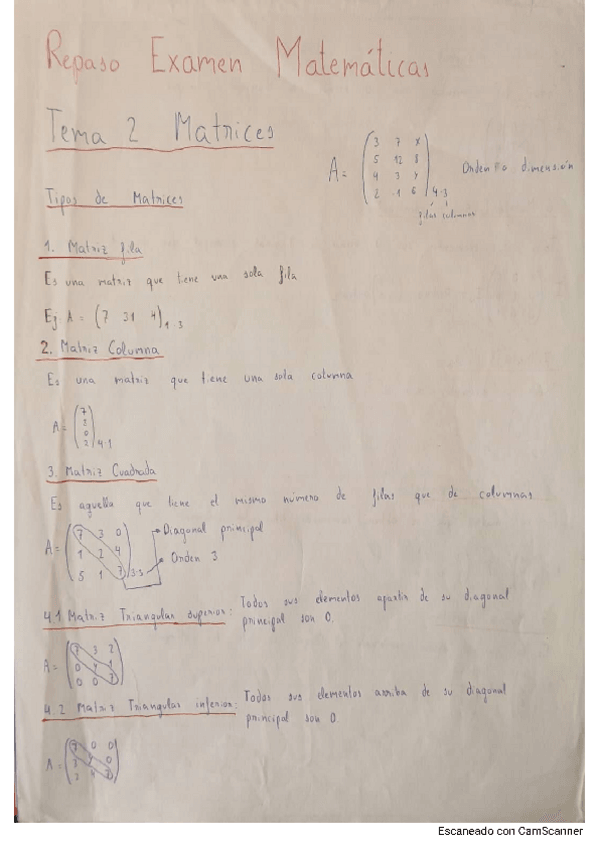 Repaso Examen Matemáticas
Tema 2 Matrices
A = (3 7 x
5 12 8
4 3 y
2 -1 6) 4·3
Orden o dimensión
filas columnas
Tipos de Matrices
1. Matriz fila
Es una matriz que tiene una sola fila
Ej A = (7 31 4) 1·3
2. Matriz Columna
Es una matriz que tiene una sola columna
A = (7
2
0
2) 4·1
3. Matriz Cuadrada
Es aquella que tiene el mismo número de filas que de columnas
A = (7 3 0
1 2 4
5 1 7) 3·3
Diagonal principal
Orden 3
4.1 Matriz Triangular superior: Todos sus elementos apartir de su diagonal
principal son 0.
A = (7 3 2
0 4 1
0 0 7)
4.2 Matriz Triangular inferior: Todos sus elementos arriba de su diagonal
principal son 0.
A = (7 0 0
3 0
2 4 7)
Escaneado con CamScanner